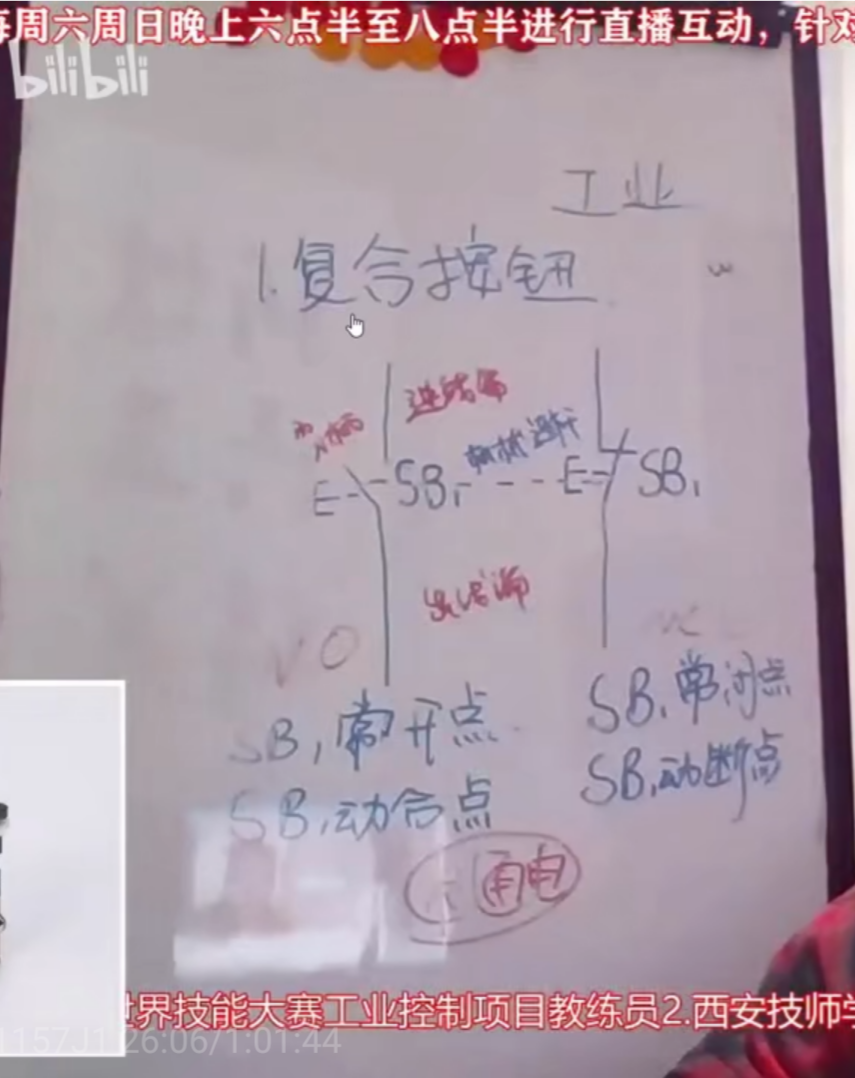 每周六周日晚上六点半至八点半进行直播互动，针对
bilibili
工业
1.复合按钮
进线端
E SB1 机械连杆 E SB1
出线端
NO
SB1常开点
SB1常闭点
SB1动合点
SB1动断点
通电
世界技能大赛工业控制项目教练员2.西安技师学
26:06/1:01:44